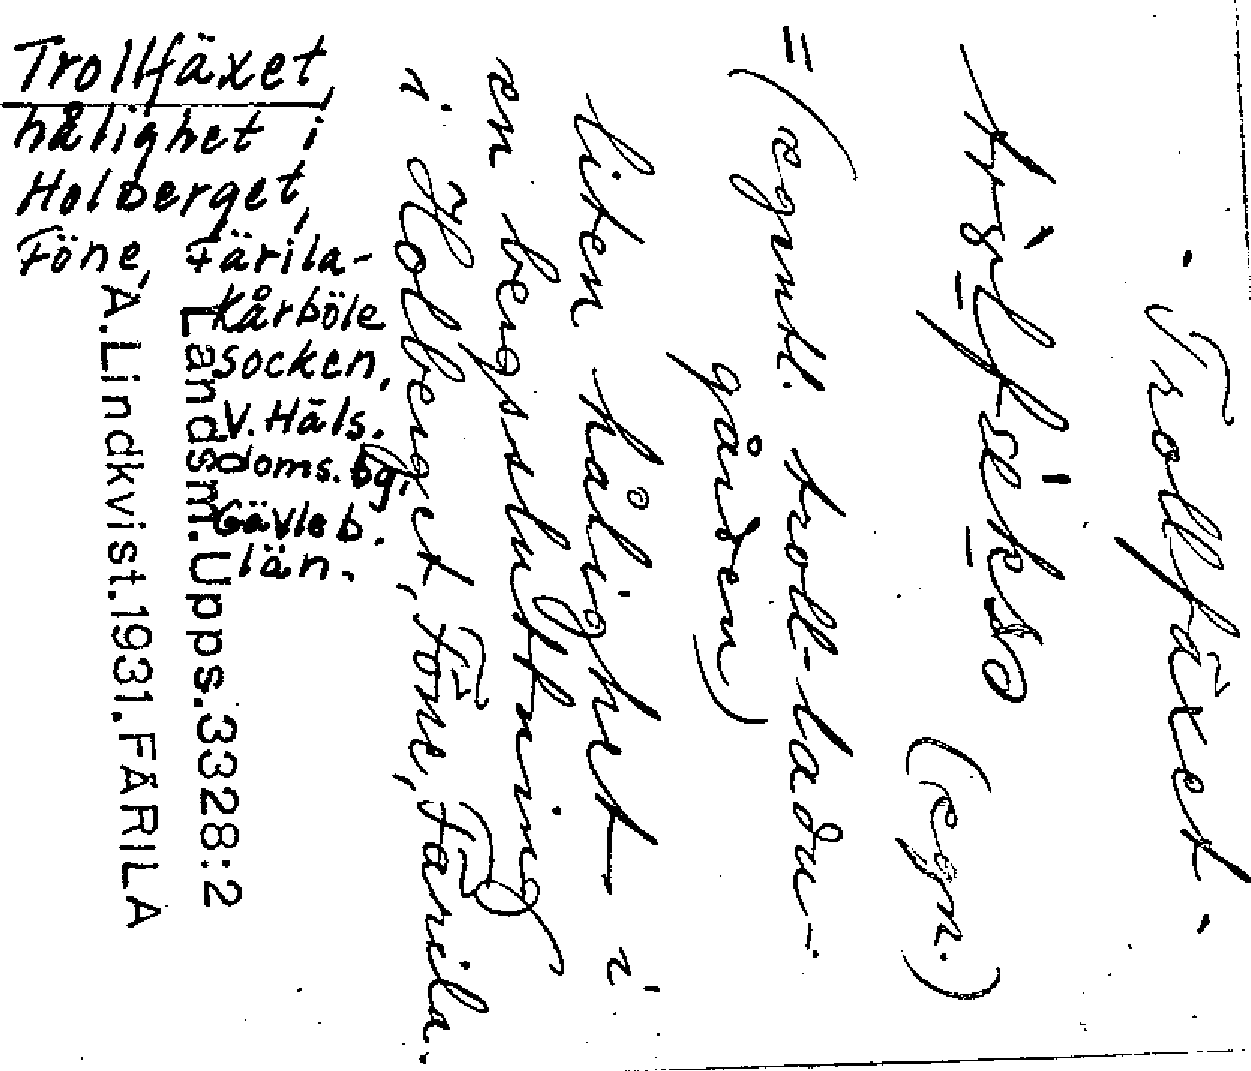 Trollfäxet,
hålighet i
Holberget,
Föne, Färila-
Kårböle
socken,
V. Häls.
doms. bg.
Gävleb.
län.
Trollfäxet.
(egn.)
= (egentl. troll-ladu-
gården)
liten hålighet i
en bergssluttning
i Holberget, Föne, Färila.
Landsm. Upps. 3328:2
A. Lindkvist. 1931. FÄRILA